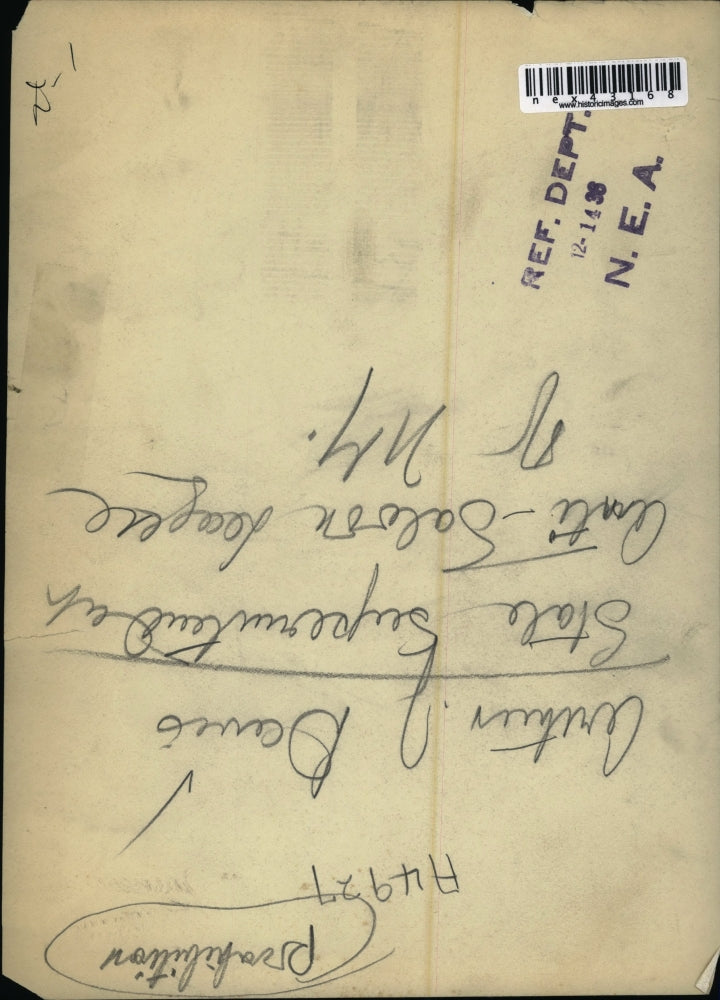 Prohibition
A4927
Arthur J. Davis
State Superintendent
Anti-Saloon League
of N.Y.
REF. DEPT.
12-14 36
N. E. A.
nex43168
www.historicimages.com